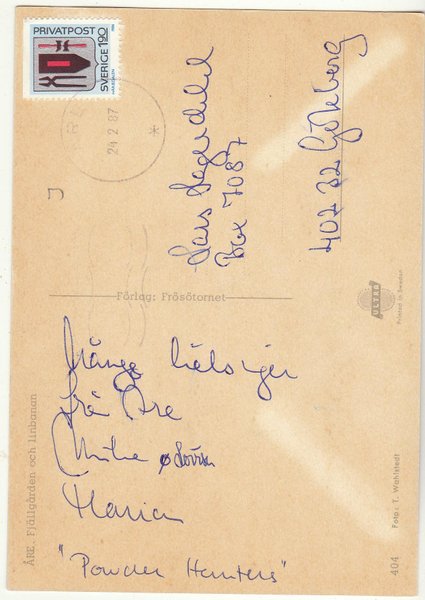 PRIVATPOST
SVERIGE 190
24 2 87
Lars
Box 7087
402 32 Göteborg
Förlag: Frösötornet
ULTRA
Printed in Sweden
Många hälsningar
från Åre
Maria
"Powder Hunters"
ÅRE. Fjällgården och linbanan
Foto: T. Wahlstedt
404